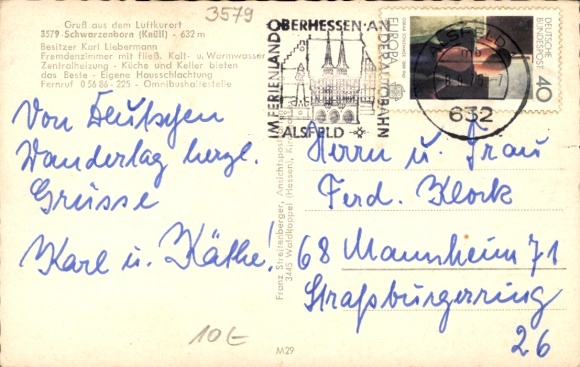 3579
Gruß aus dem Luftkurort
3579 Schwarzenborn (Knüll) - 632 m
Besitzer Karl Liebermann
Fremdenzimmer mit fließ. Kalt- u. Warmwasser
Zentralheizung - Küche und Keller bieten
das Beste - Eigene Hausschlachtung
Fernruf 0 56 86 - 225 - Omnibushaltestelle
IM FERIENLAND OBERHESSEN · AN DER AUTOBAHN
ALSFELD
EUROPA
DEUTSCHE BUNDESPOST
40
ALSFELD
632
Von Deutschen
Wandertag herzl.
Grüsse
Karl u. Käthe.
Herrn u. Frau
Ferd. Klock
68 Mannheim 71
Straßburgerring
26
Franz Streitenberger, Ansichtspost
3445 Waldkappel (Hessen),
10 €
M29